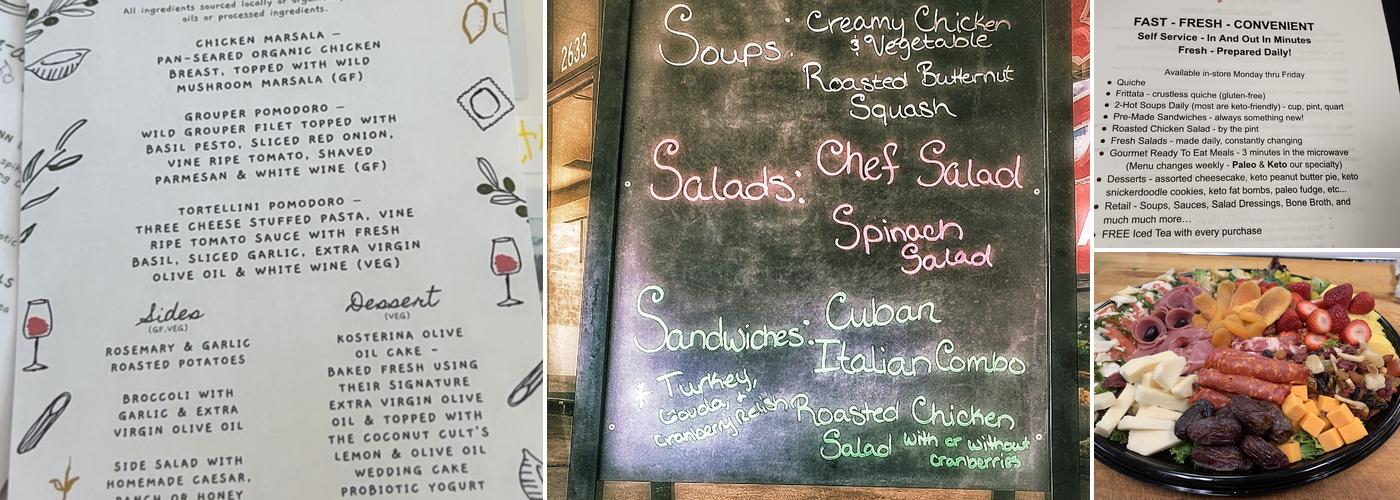 All ingredients sourced locally or
oils or processed ingredients.
CHICKEN MARSALA –
PAN-SEARED ORGANIC CHICKEN
BREAST, TOPPED WITH WILD
MUSHROOM MARSALA (GF)
GROUPER POMODORO –
WILD GROUPER FILET TOPPED WITH
BASIL PESTO, SLICED RED ONION,
VINE RIPE TOMATO, SHAVED
PARMESAN & WHITE WINE (GF)
TORTELLINI POMODORO –
THREE CHEESE STUFFED PASTA, VINE
RIPE TOMATO SAUCE WITH FRESH
BASIL, SLICED GARLIC, EXTRA VIRGIN
OLIVE OIL & WHITE WINE (VEG)
Sides
(GF,VEG)
ROSEMARY & GARLIC
ROASTED POTATOES
BROCCOLI WITH
GARLIC & EXTRA
VIRGIN OLIVE OIL
SIDE SALAD WITH
HOMEMADE CAESAR,
RANCH OR HONEY
Dessert
(VEG)
KOSTERINA OLIVE
OIL CAKE –
BAKED FRESH USING
THEIR SIGNATURE
EXTRA VIRGIN OLIVE
OIL & TOPPED WITH
THE COCONUT CULT'S
LEMON & OLIVE OIL
WEDDING CAKE
PROBIOTIC YOGURT
2633
Soups: Creamy Chicken
& Vegetable
Roasted Butternut
Squash
Salads: Chef Salad
Spinach
Salad
Sandwiches: Cuban
Italian Combo
* Turkey,
Gouda, +
Cranberry Relish
Roasted Chicken
Salad with or without
cranberries
FAST - FRESH - CONVENIENT
Self Service - In And Out In Minutes
Fresh - Prepared Daily!
Available in-store Monday thru Friday
• Quiche
• Frittata - crustless quiche (gluten-free)
• 2-Hot Soups Daily (most are keto-friendly) - cup, pint, quart
• Pre-Made Sandwiches - always something new!
• Roasted Chicken Salad - by the pint
• Fresh Salads - made daily, constantly changing
• Gourmet Ready To Eat Meals - 3 minutes in the microwave
(Menu changes weekly - Paleo & Keto our specialty)
• Desserts - assorted cheesecake, keto peanut butter pie, keto
snickerdoodle cookies, keto fat bombs, paleo fudge, etc...
• Retail - Soups, Sauces, Salad Dressings, Bone Broth, and
much much more...
• FREE Iced Tea with every purchase